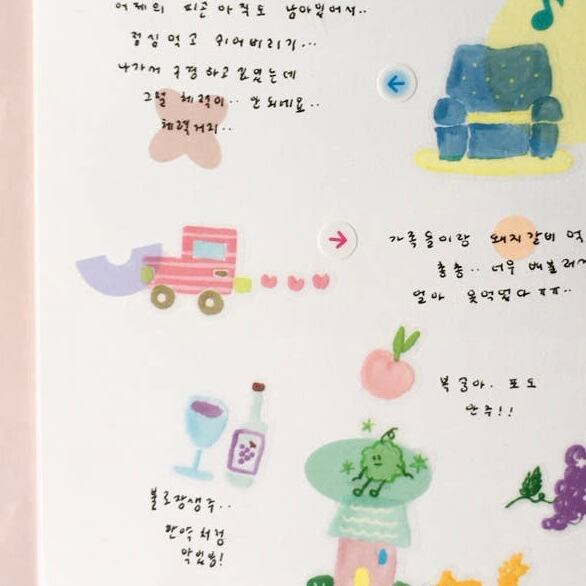 어제의 피곤 아직도 남아있어서..
점심먹고 쉬어버리기...
나가서 구경하고 싶었는데
그럴 체력이.. 안되네요..
체력거지..
가족들이랑 돼지갈비 먹
춤춤.. 너무 배불러서
얼마 못먹었다ㅠㅠ..
복숭아. 포도
안주!!
불로장생주..
한약처럼